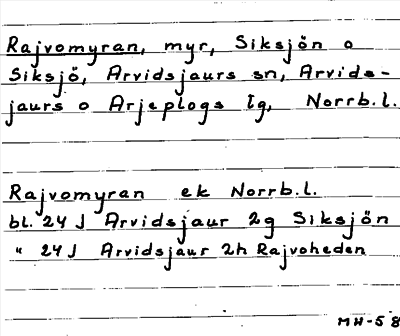 Rajvomyran, myr, Siksjön o
Siksjö, Arvidsjaurs sn, Arvids-
jaurs o Arjeplogs tg, Norrb.l.
Rajvomyran ek Norrb.l.
bl. 24 J Arvidsjaur 2g Siksjön
" 24 J Arvidsjaur 2h Rajvoheden
MH-58